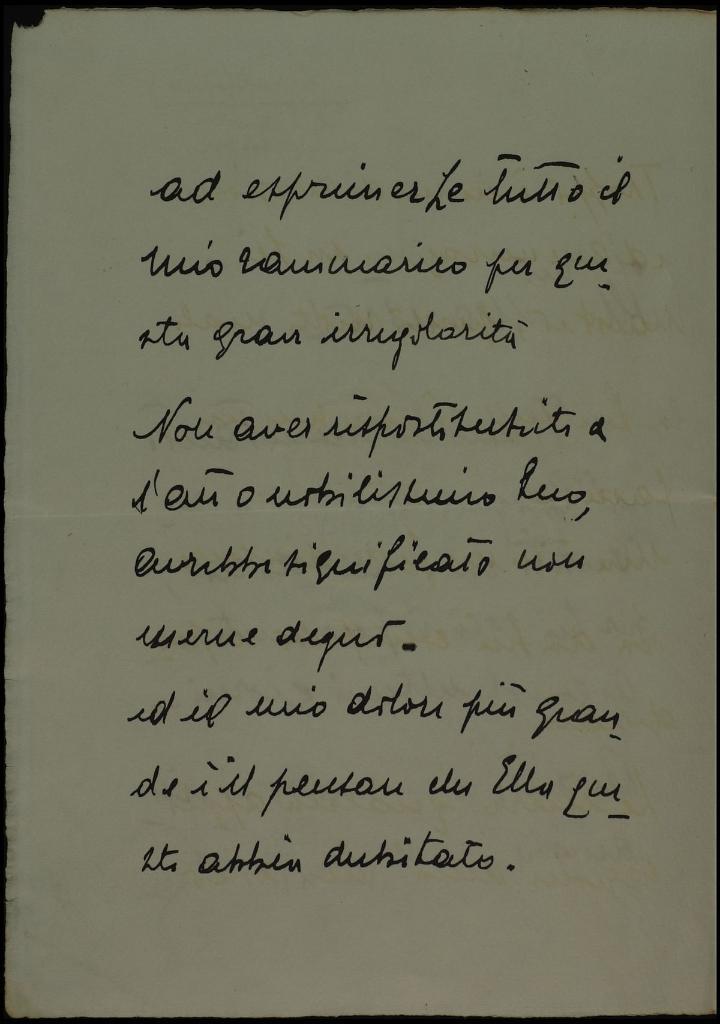 ad esprimerLe tutto il
mio rammarico per que-
sta gran irregolarità
Non aver risposto subito a
l'atto nobilissimo Suo,
avrebbe significato non
esserne degno.
ed il mio dolore più gran-
de è il pensare che Ella que-
sto abbia dubitato.